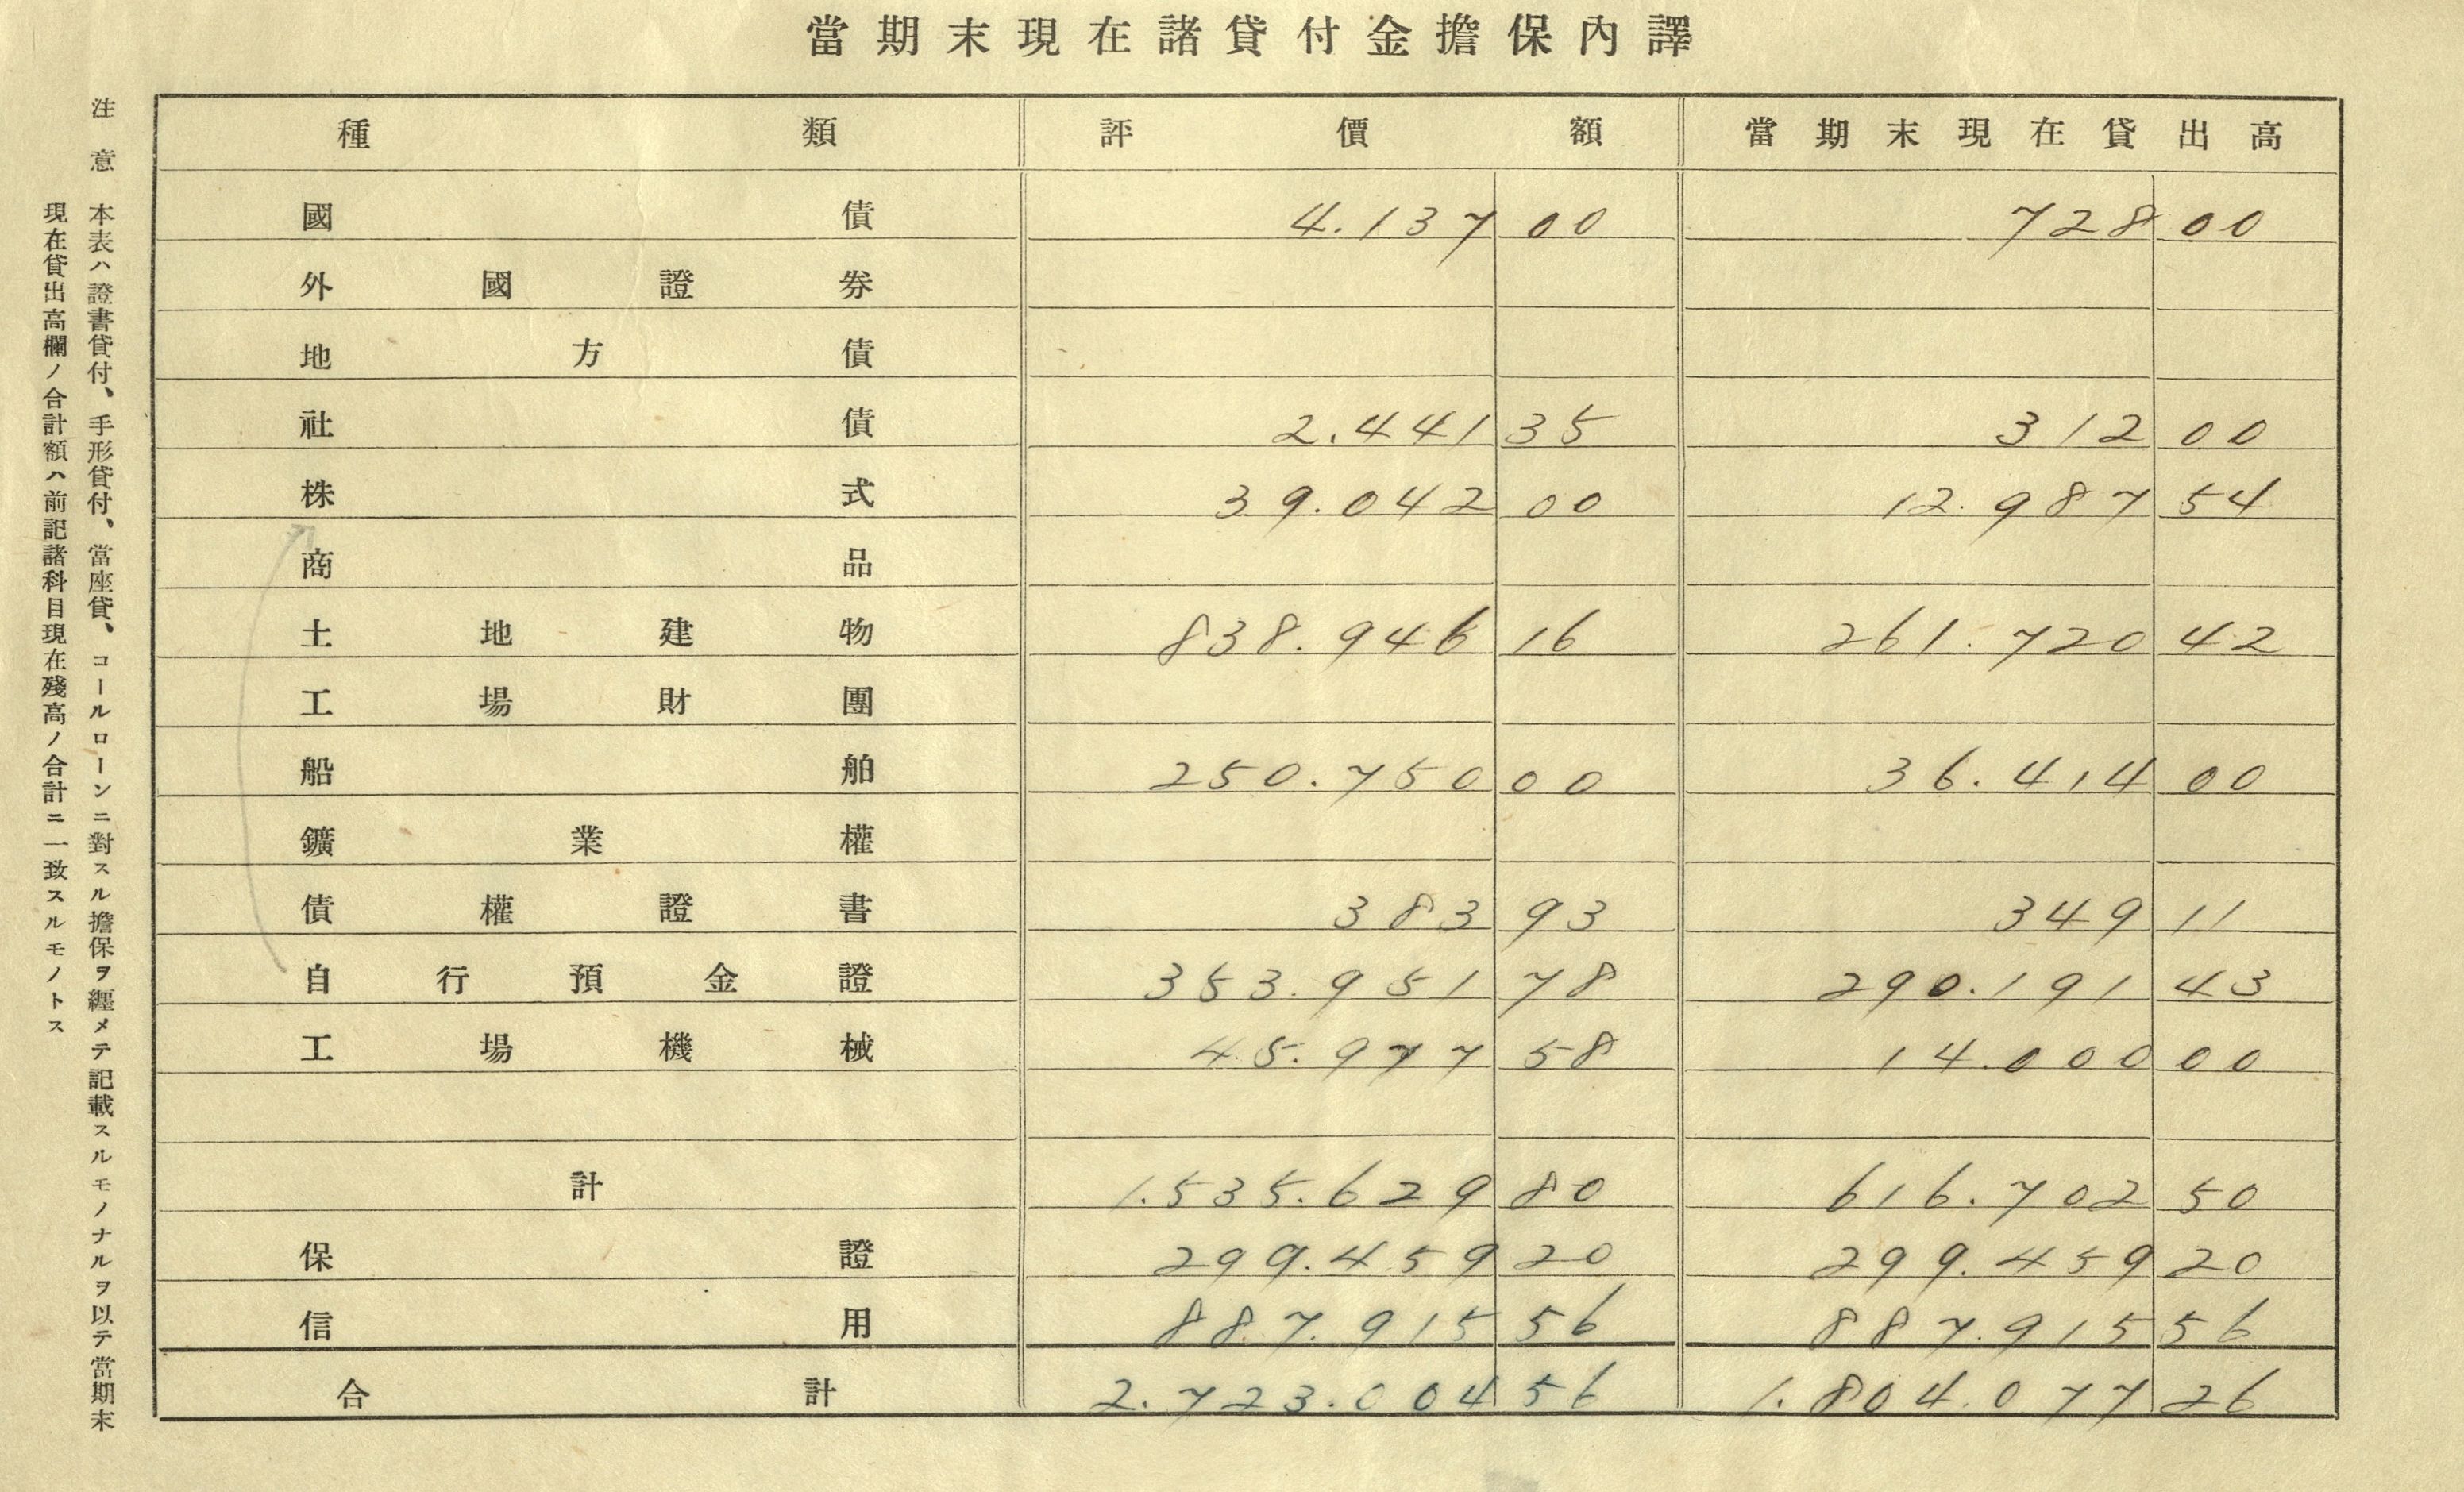 當期末現在諸貸付金擔保內譯
種類 評價額 當期末現在貸出高
國債 4.137 00 728 00
外國證券
地方債
社債 2.441 35 312 00
株式 39.042 00 12.987 54
商品
土地建物 838.946 16 261.720 42
工場財團
船舶 250.750 00 36.414 00
鑛業權
債權證書 383 93 349 11
自行預金證 353.951 78 290.191 43
工場機械 45.977 58 14.000 00
計 1.535.629 80 616.702 50
保證 299.459 20 299.459 20
信用 887.915 56 887.915 56
合計 2.723.004 56 1.804.077 26
注意
本表ハ證書貸付、手形貸付、當座貸、コールローンニ對スル擔保ヲ纒メテ記載スルモノナルヲ以テ當期末
現在貸出高欄ノ合計額ハ前記諸科目現在殘高ノ合計ニ一致スルモノトス